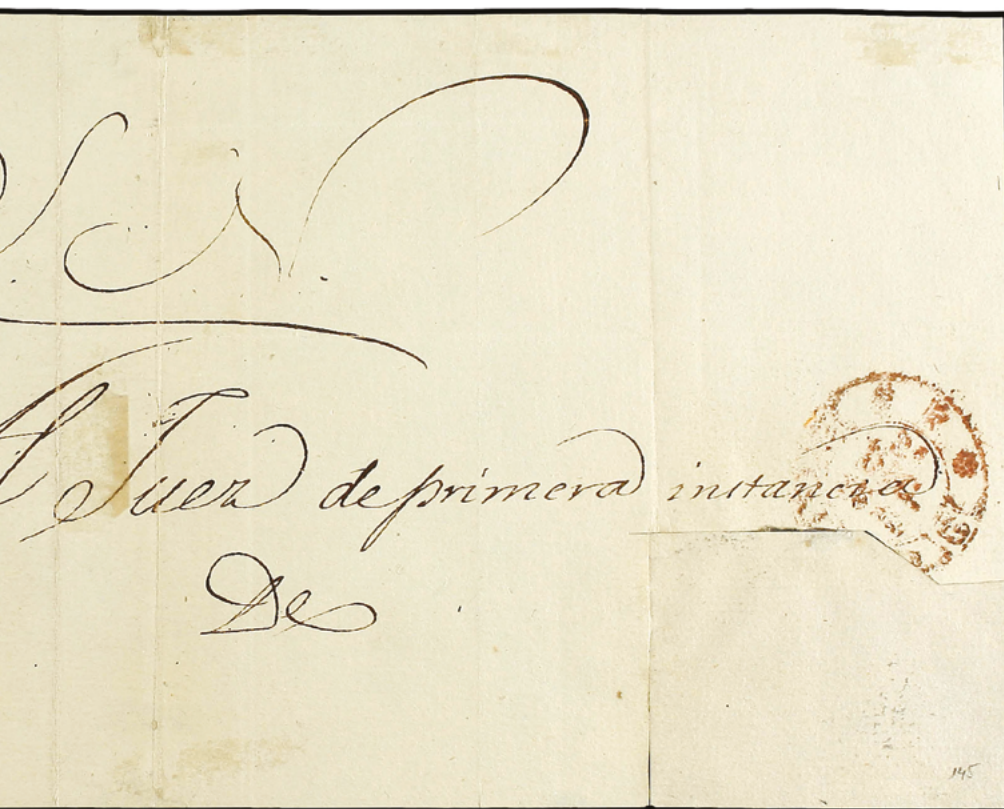 S. N.
Al Juez de primera instancia
De
145